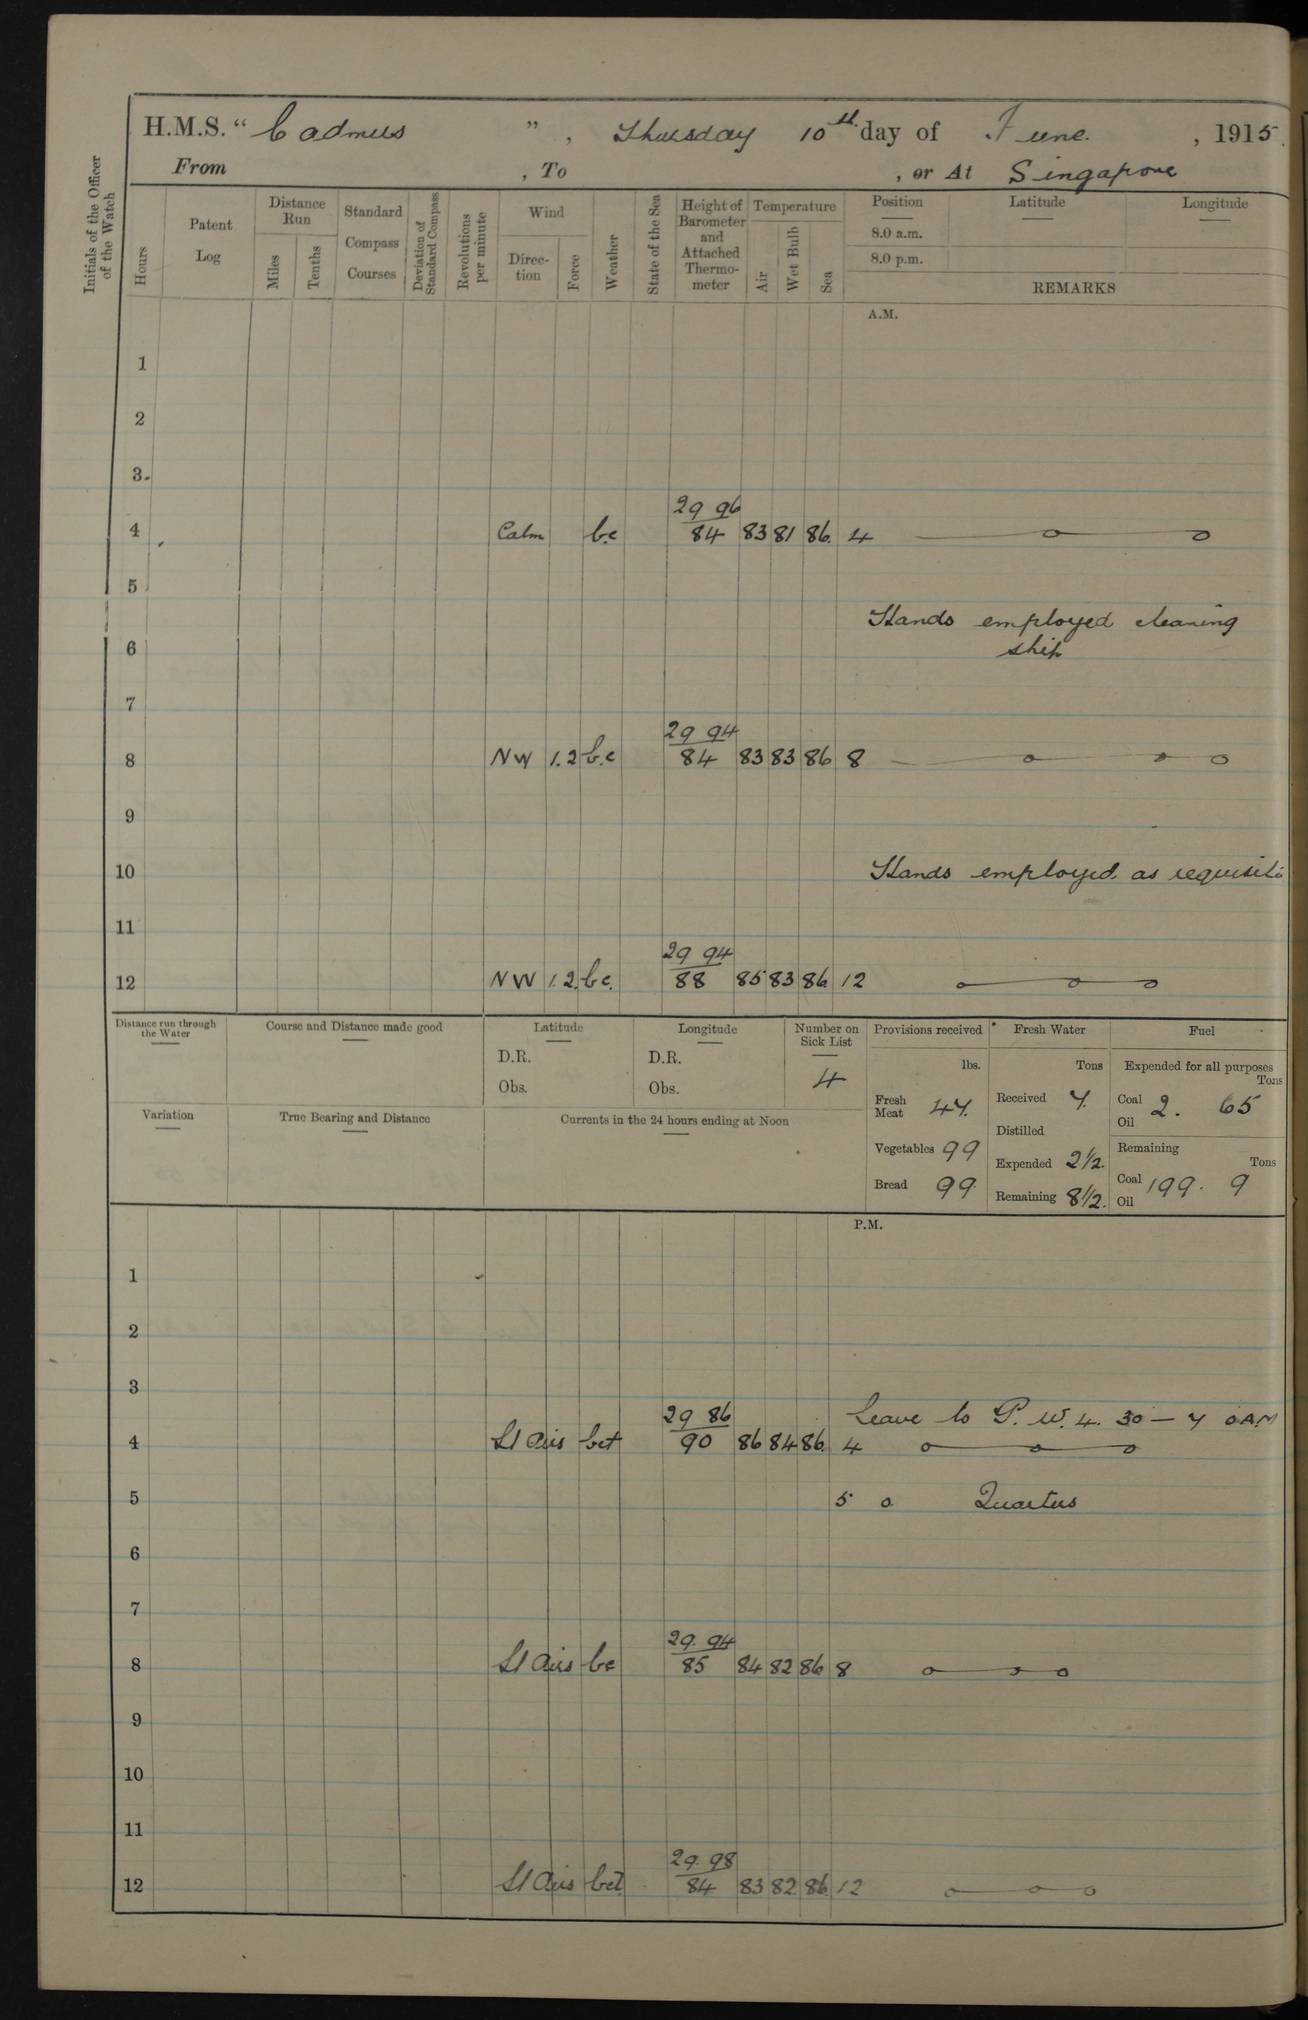 H.M.S. "Cadmus", Thursday 10th day of June, 1915.
From , To , or At Singapore
Initials of the Officer of the Watch
Hours
Patent Log
Distance Run
Miles
Tenths
Standard Compass Courses
Deviation of Standard Compass
Revolutions per minute
Wind
Direc-tion
Force
Weather
State of the Sea
Height of Barometer and Attached Thermo-meter
Temperature
Air
Wet Bulb
Sea
Position
8.0 a.m.
8.0 p.m.
Latitude
Longitude
REMARKS
A.M.
1
2
3
29 96
4 Calm bc 84 83 81 86 4
5
Hands employed cleaning
6 ship
7
29 94
8 NW 1.2 b.c 84 83 83 86 8
9
10 Hands employed as requisite
11
29 94
12 NW 1.2. bc. 88 85 83 86 12
Distance run through the Water
Course and Distance made good
Latitude
D.R.
Obs.
Longitude
D.R.
Obs.
Number on Sick List
4
Variation
True Bearing and Distance
Currents in the 24 hours ending at Noon
Provisions received
lbs.
Fresh Meat 47.
Vegetables 99
Bread 99.
Fresh Water
Tons
Received 7.
Distilled
Expended 2½.
Remaining 8½.
Fuel
Expended for all purposes
Tons
Coal 2. 65
Oil
Remaining
Tons
Coal 199. 9
Oil
P.M.
1
2
3
29 86 Leave to P. W. 4. 30 — 7 0 AM
4 Lt Airs bct 90 86 84 86. 4
5 5 0 Quarters
6
7
29. 94
8 Lt Airs bc 85 84 82 86 8
9
10
11
29. 98
12 Lt Airs bct. 84 83 82 86 12